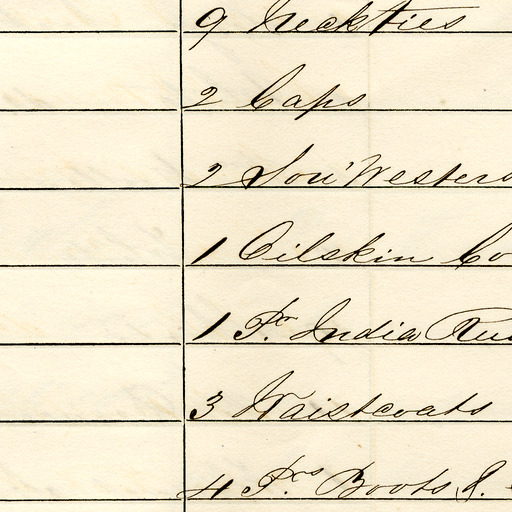 9 Neckties
2 Caps
2 Sou'Westers
1 Oilskin Co
1 Pr. India Ru
3 Waistcoats
4 Prs Boots &